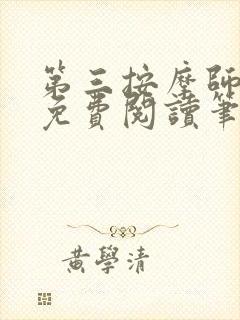 第三按摩師
免費閱讀筆
黃學清